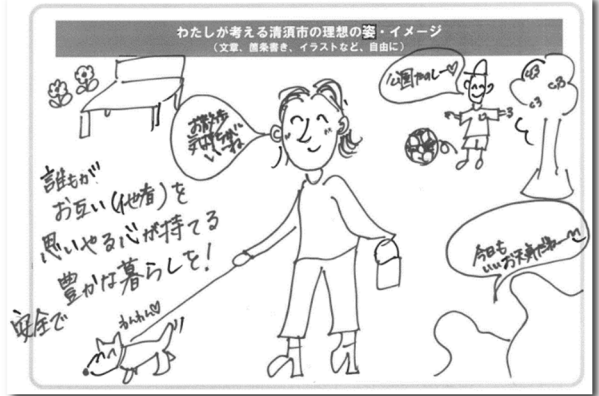 わたしが考える清須市の理想の姿・イメージ
（文章、箇条書き、イラストなど、自由に）
公園たのしー♡
お散歩
気持ちが
いいね
誰もが
お互い(他者)を
思いやる心が持てる
豊かな暮らしを!
安全で
わんわん♡
今日も
いいお天気だね〜